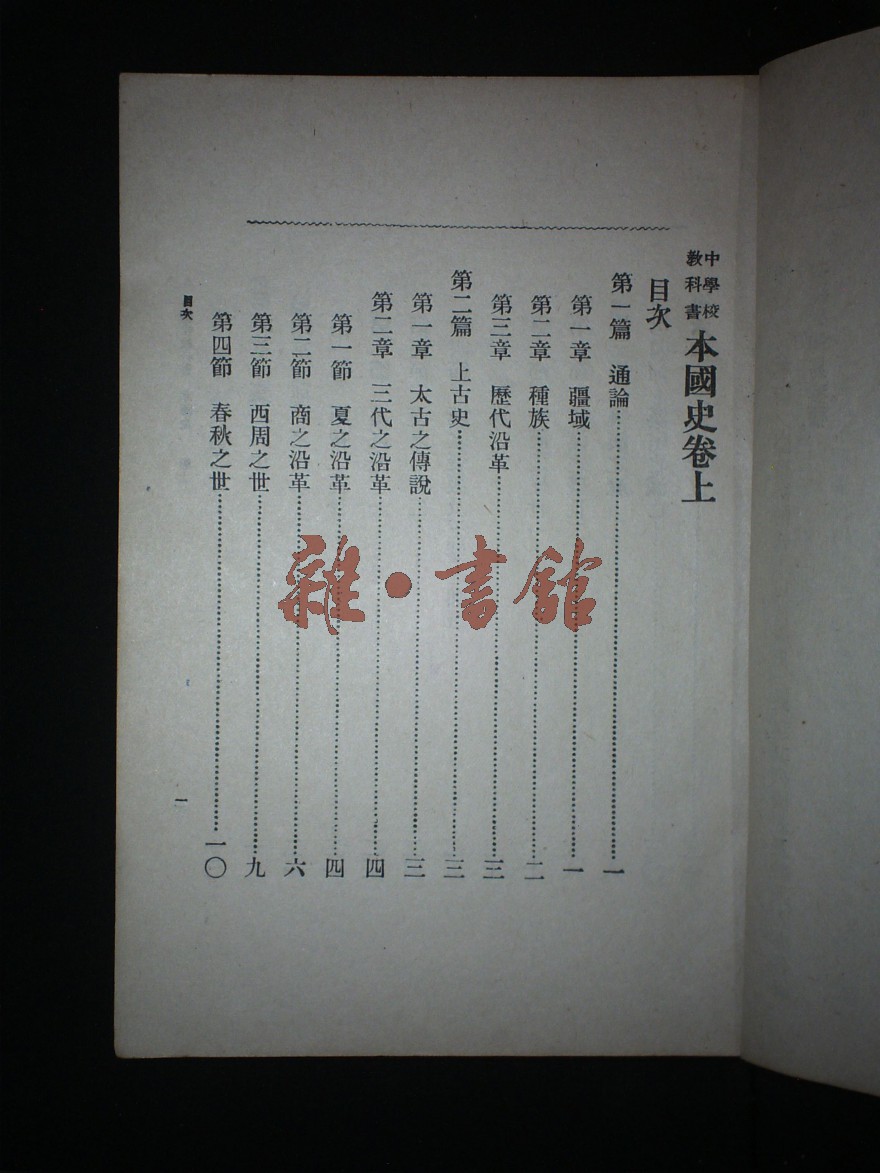 中學校
教科書
本國史卷上
目次
第一篇 通論……一
第一章 疆域……一
第二章 種族……二
第三章 歷代沿革……三
第二篇 上古史……三
第一章 太古之傳說……三
第二章 三代之沿革……四
第一節 夏之沿革……四
第二節 商之沿革……六
第三節 西周之世……九
第四節 春秋之世……一〇
目次
一
雜·書館